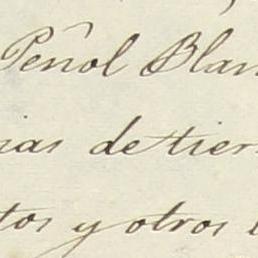 Peñol Blan
ias de tier
tos y otros